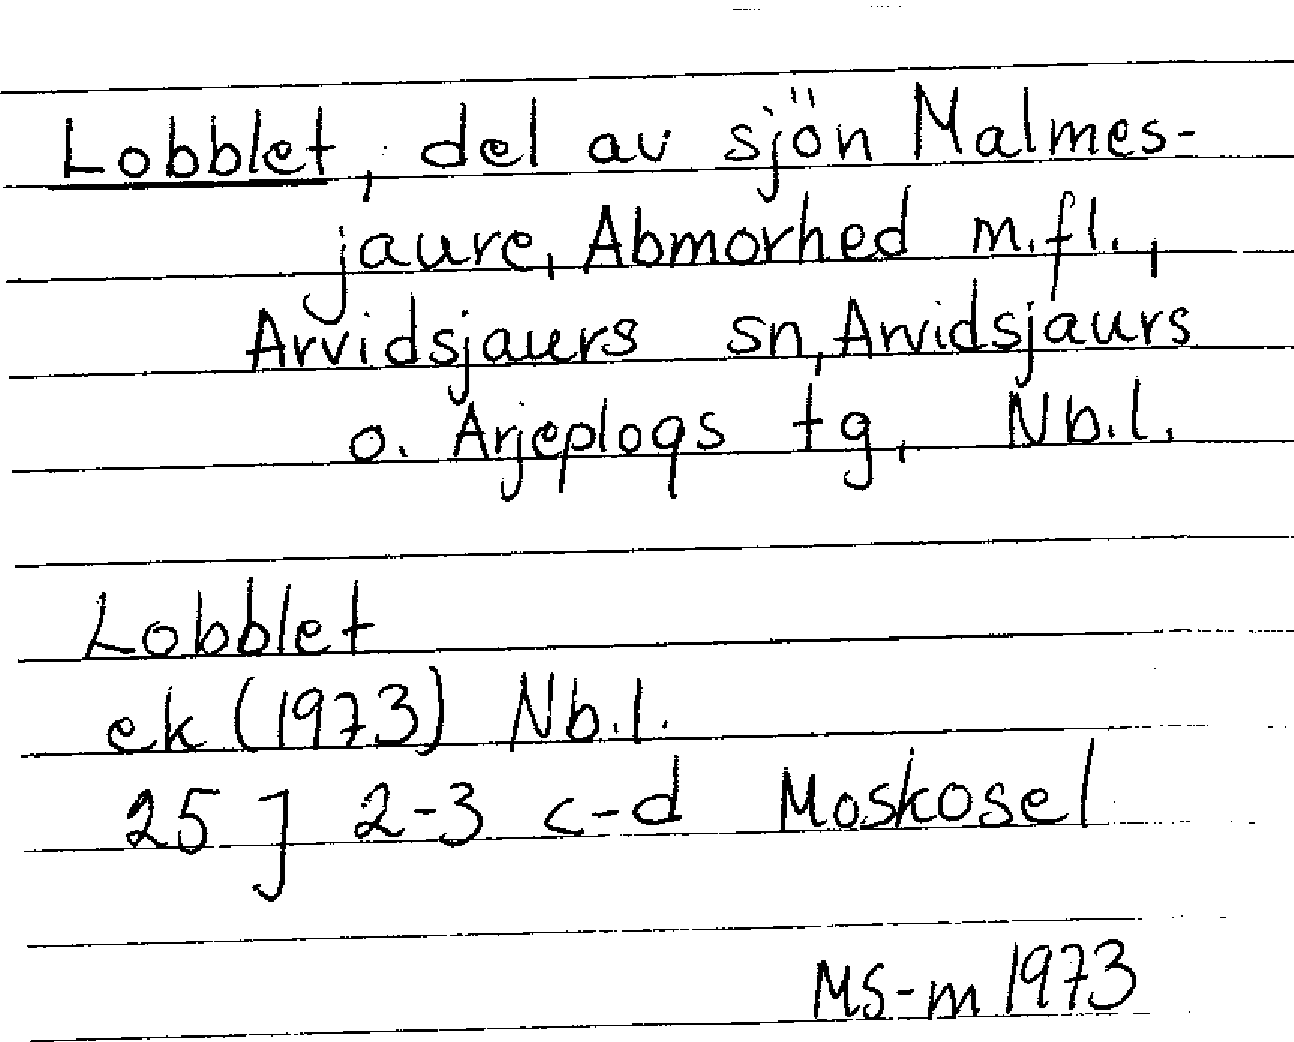 Lobblet, del av sjön Malmes-
jaure, Abmorhed m.fl.,
Arvidsjaurs sn, Arvidsjaurs
o. Arjeplogs tg, Nb.l.
Lobblet
ek (1973) Nb.l.
25 J 2-3 c-d Moskosel
MS-m 1973